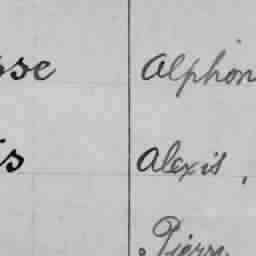 Alphon
Alexis,
Pierre